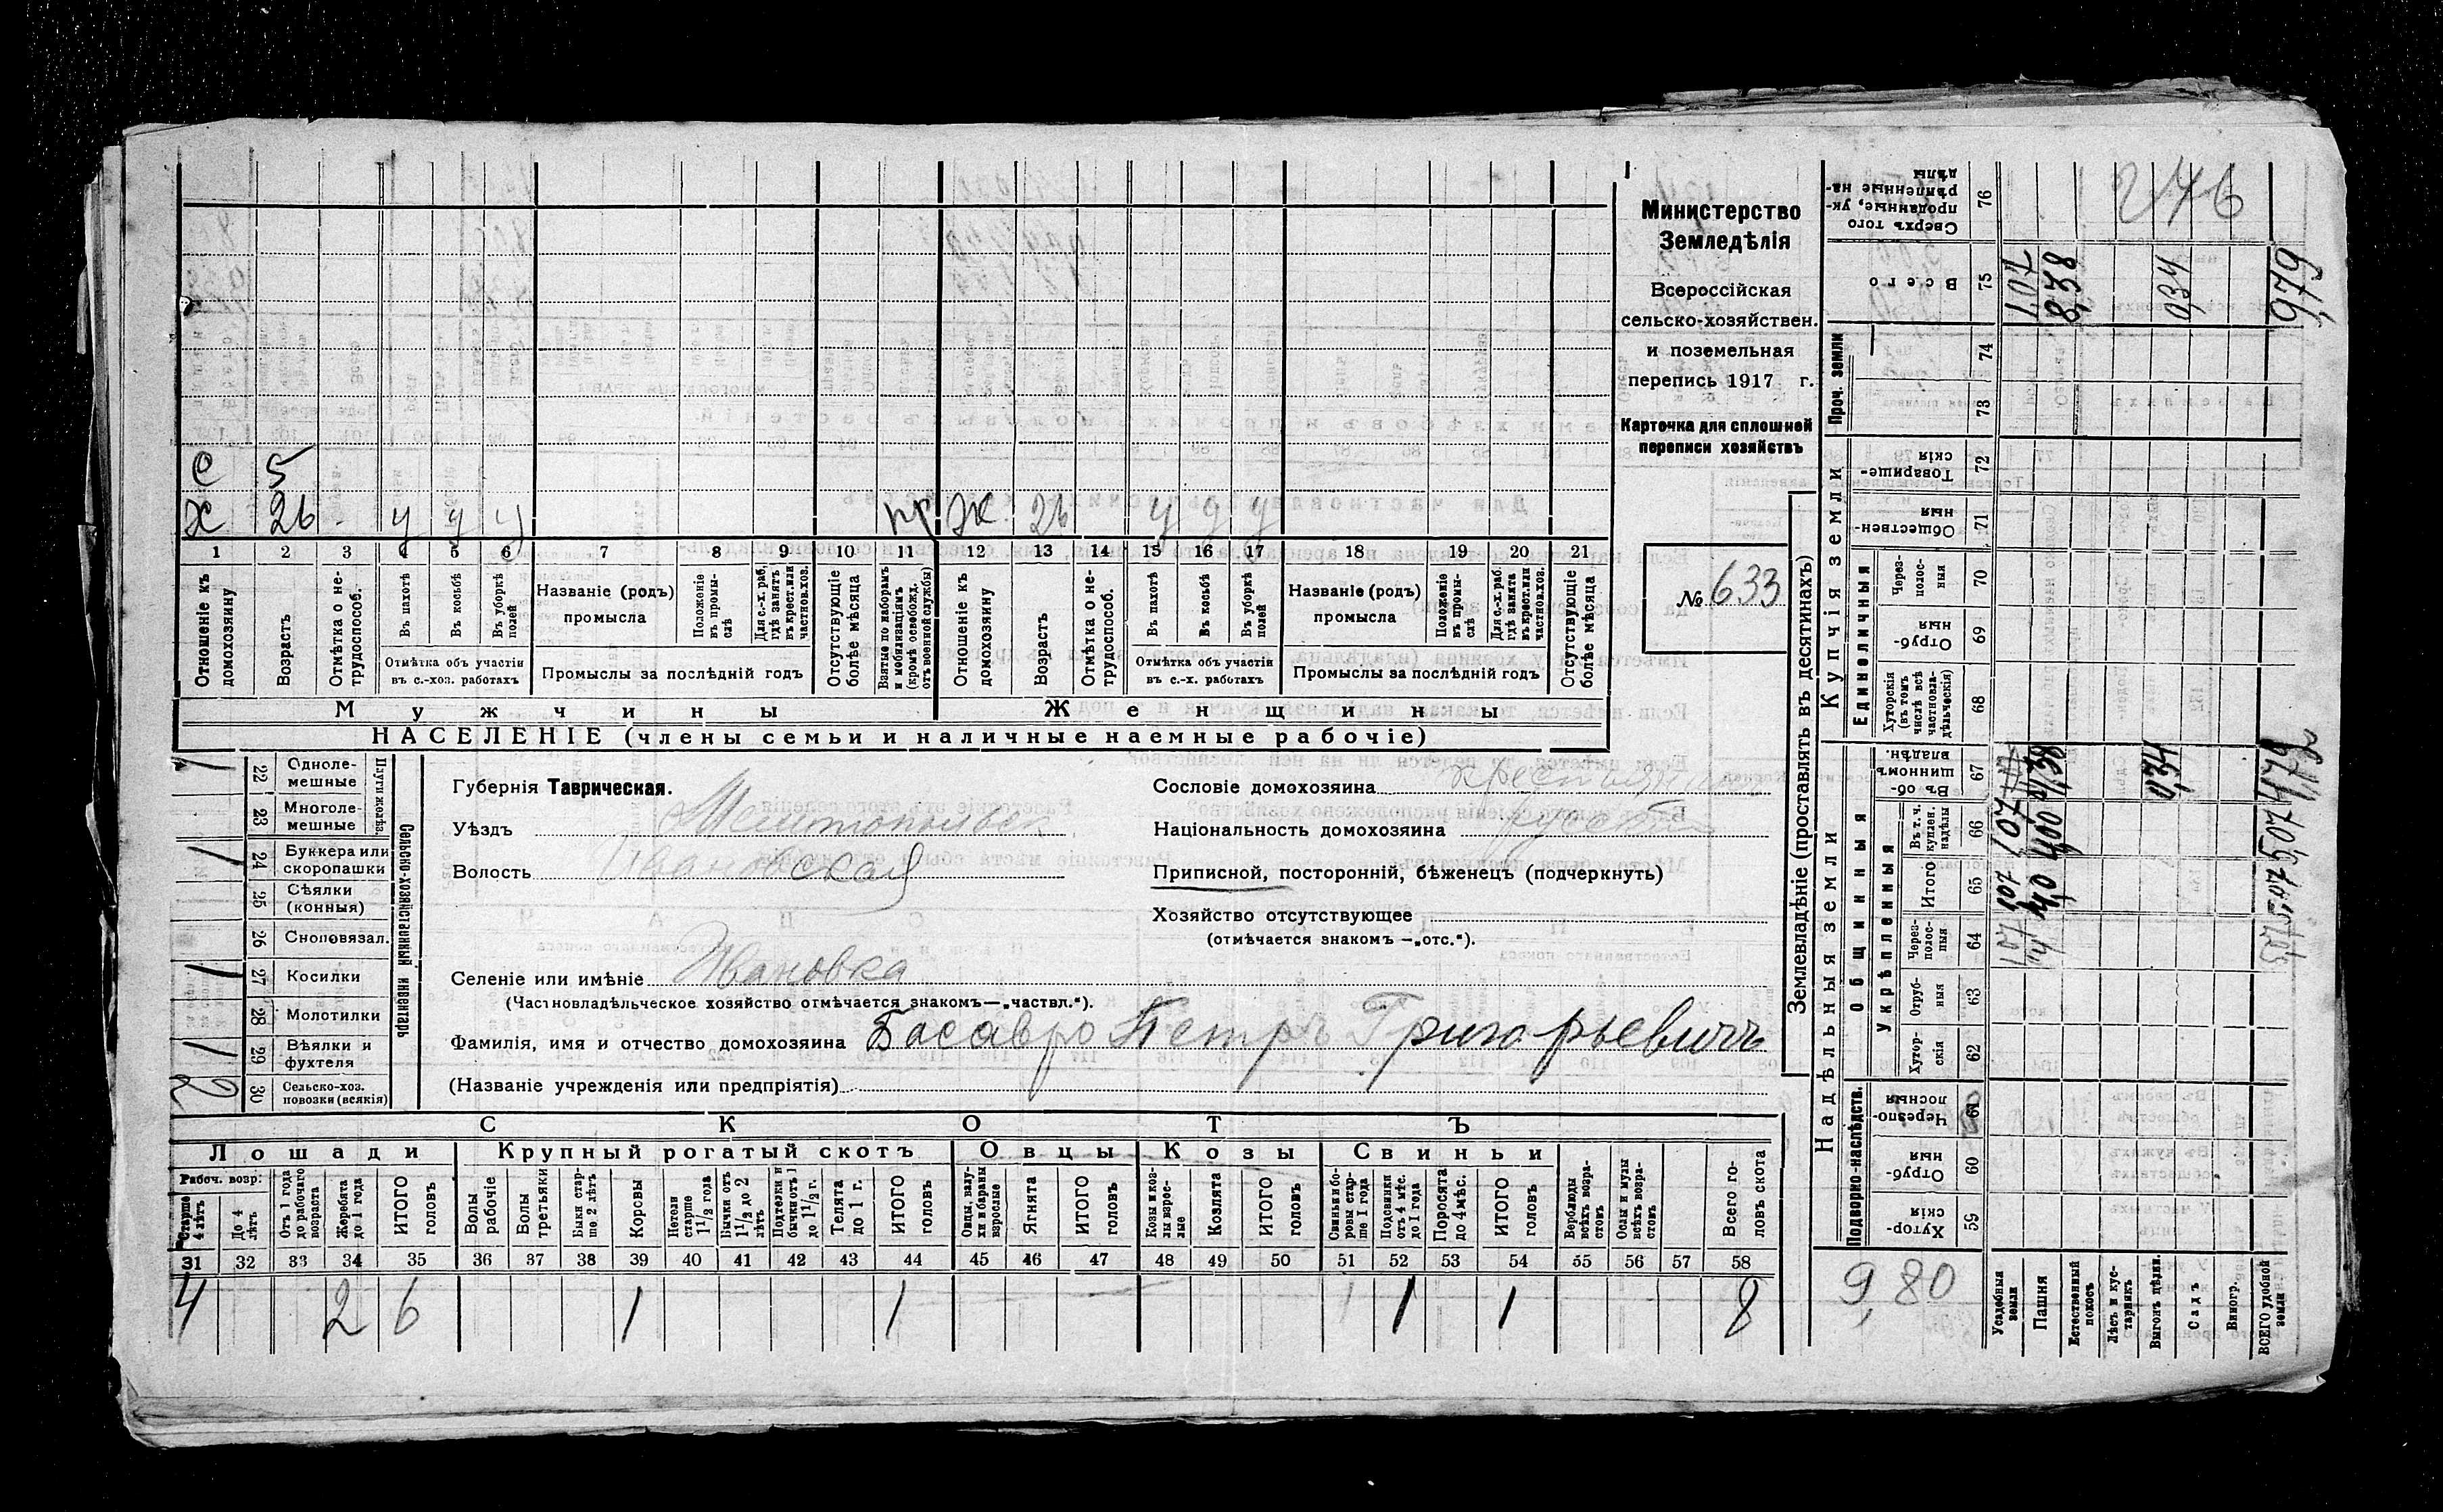 Министерство
Земледѣлія
Всероссійская
сельско-хозяйствен.
и поземельная
перепись 1917 г.
Карточка для сплошной
переписи хозяйствъ
№ 633
с 5
х 26 - у у у пр Ж. 26 у у у
1 2 3 4 5 6 7 8 9 10 11 12 13 14 15 16 17 18 19 20 21
Отношеніе къ домохозяину
Возрастъ
Отмѣтка о не-трудоспособ.
Въ пахотѣ
Въ косьбѣ
Въ уборкѣ полей
Отмѣтка объ участіи въ с.-хоз. работахъ
Названіе (родъ) промысла
Положеніе въ промы-слѣ
Для с.-х. раб, гдѣ занятъ въ крест. или частнов. хоз.
Промыслы за послѣдній годъ
Отсутствующіе болѣе мѣсяца
Взятые по наборамъ и мобилизаціямъ (кромѣ освобожд. отъ военной службы)
Отношеніе къ домохозяину
Возрастъ
Отмѣтка о не-трудоспособ.
Въ пахотѣ
Въ косьбѣ
Въ уборкѣ полей
Отмѣтка объ участіи въ с.-х. работахъ
Названіе (родъ) промысла
Положеніе въ промы-слѣ
Для с.-х. раб. гдѣ занята въ крест. или частнов. хоз.
Промыслы за послѣдній годъ
Отсутствующіе болѣе мѣсяца
Мужчины Женщины
НАСЕЛЕНІЕ (члены семьи и наличные наемные рабочіе)
Сельско-хозяйственный инвентарь
22 Одноле-мешные 1
23 Многоле-мешные
24 Буккера или скоропашки 1
25 Сѣялки (конныя)
26 Сноповязал.
27 Косилки 1
28 Молотилки
29 Вѣялки и фухтеля 1
30 Сельско-хоз. повозки (всякія) 2
Губернія Таврическая.
Уѣздъ Мелитопольск
Волость Ивановская
Селеніе или имѣніе Ивановка
(Частновладѣльческое хозяйство отмѣчается знакомъ—„частвл.“).
Фамилія, имя и отчество домохозяина Басавро Петръ Григорьевичъ
(Названіе учрежденія или предпріятія)
Сословіе домохозяина крестьянинъ
Національность домохозяина русскій
Приписной, посторонній, бѣженецъ (подчеркнуть)
Хозяйство отсутствующее
(отмѣчается знакомъ —„отс.“).
СКОТЪ
Лошади Крупный рогатый скотъ Овцы Козы Свиньи
Рабоч. возр:
Старше 4 лѣтъ
До 4 лѣтъ
Отъ 1 года до рабочаго возраста
Жеребята до 1 года
ИТОГО головъ
Волы рабочіе
Волы третьяки
Быки стар-ше 2 лѣтъ
Коровы
Нетели старше 1 1/2 года
Бычки отъ 1 1/2 до 2 лѣтъ
Подтелки и бычки отъ 1 до 1 1/2 г.
Телята до 1 г.
ИТОГО головъ
Овцы, валу-хи и бараны взрослые
Ягнята
ИТОГО головъ
Козы и коз-лы взрос-лые
Козлята
ИТОГО головъ
Свиньи и бо-ровы стар-ше 1 года
Подсвинки отъ 4 мѣс. до 1 года
Поросята до 4 мѣс.
ИТОГО головъ
Верблюды всѣхъ возра-стовъ
Ослы и мулы всѣхъ возра-стовъ
Всего го-ловъ скота
31 32 33 34 35 36 37 38 39 40 41 42 43 44 45 46 47 48 49 50 51 52 53 54 55 56 57 58
4 2 6 1 1 1 1 8
Землевладѣніе (проставлять въ десятинахъ)
Надѣльныя земли Купчія земли Проч. земли
Подворно-наслѣдств.
общинныя
Укрѣпленныя
Единоличныя
59 Хутор-скія
60 Отруб-ныя
61 Черезпо-лосныя
62 Хутор-скія
63 Отруб-ныя
64 Через-полос-ныя
65 Итого
66 Въ т. ч. куплен. надѣлы
67 Въ об-щинномъ владѣн.
68 Хуторскія (въ томъ числѣ всѣ частновла-дѣльческія)
69 Отруб-ныя
70 Через-полос-ныя
71 Обществен-ныя
72 Товарище-скія
73
74
75 Всего
76 Сверхъ того проданные, ук-рѣпленные на-дѣлы
Усадебныя земли 1,07
Пашня 8,38
Естественный покосъ
Лѣсъ и кус-тарникъ
Выгонъ цѣлин. 0,34 034
Садъ
Виногр.
ВСЕГО удобной земли 979
9,80
276